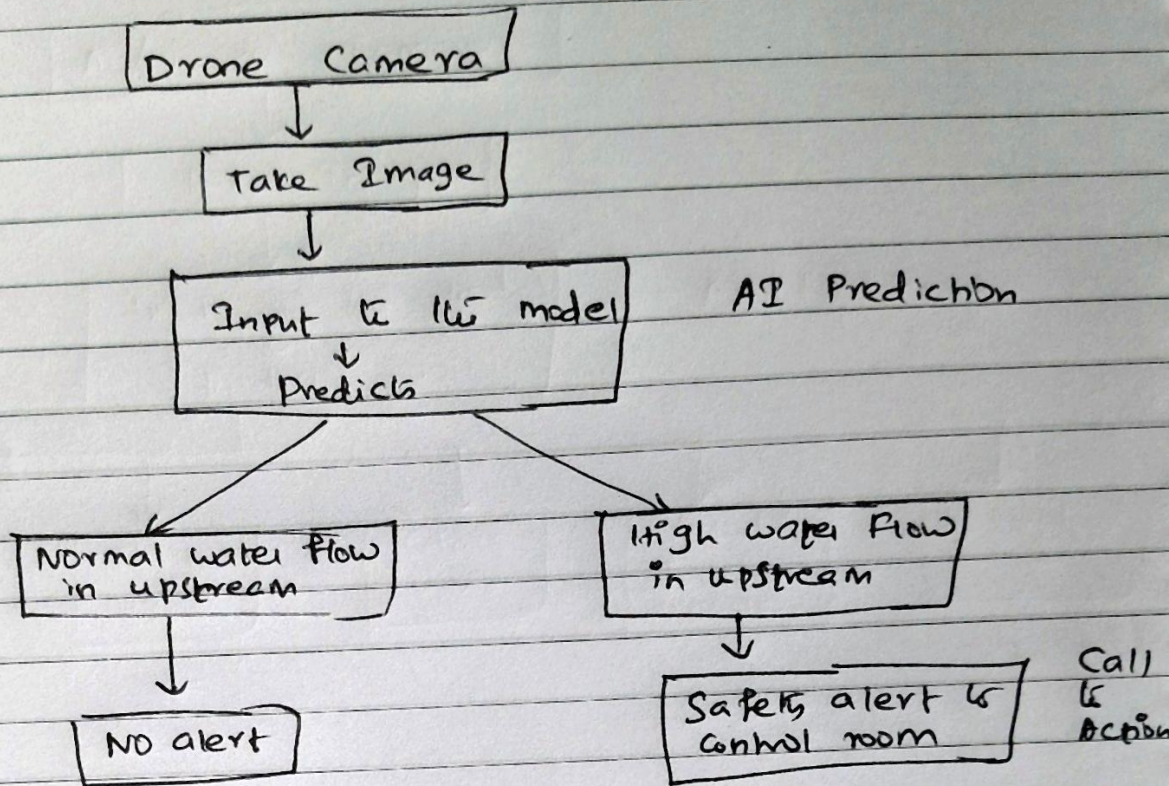 Drone Camera
Take Image
Input to the model
AI Prediction
Predicts
Normal water flow
in upstream
High water flow
in upstream
No alert
Safety alert to
control room
Call
to
Action